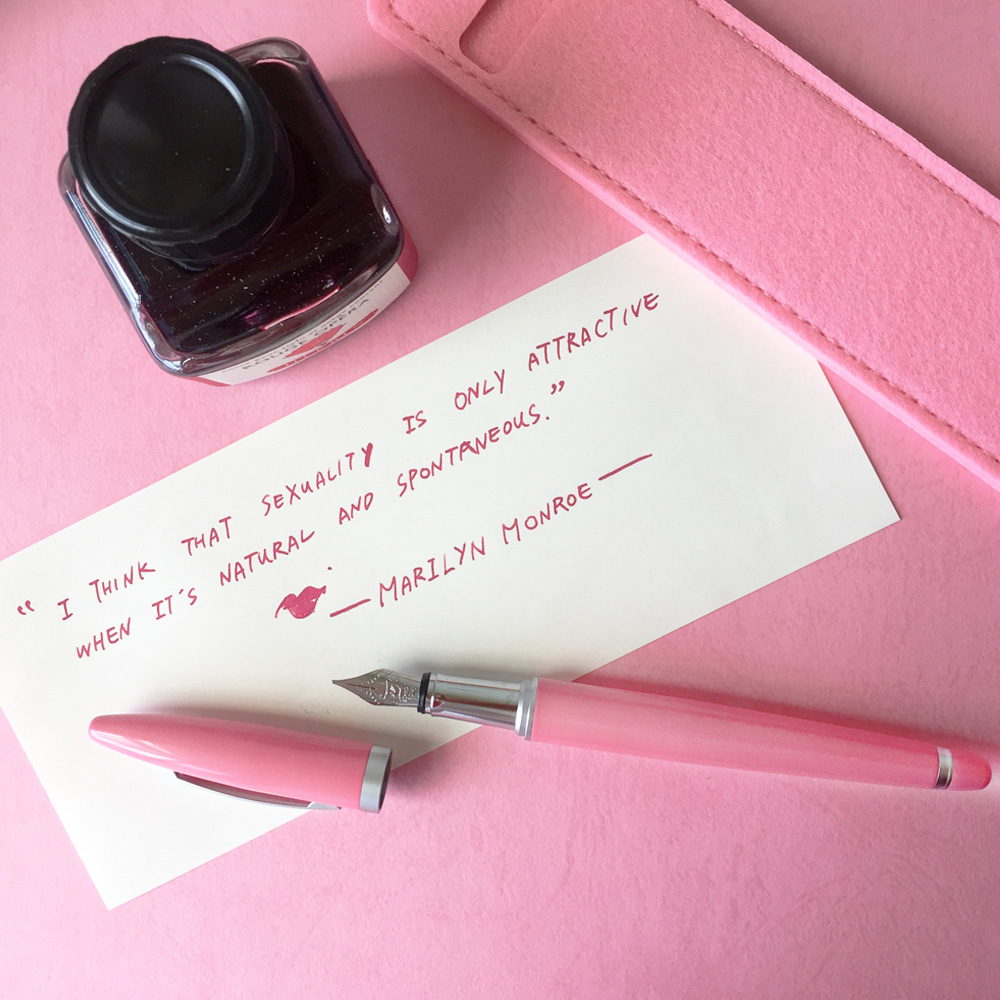 ROUGE OPÉRA
“ I THINK THAT SEXUALITY IS ONLY ATTRACTIVE
WHEN IT'S NATURAL AND SPONTANEOUS.”
— MARILYN MONROE —